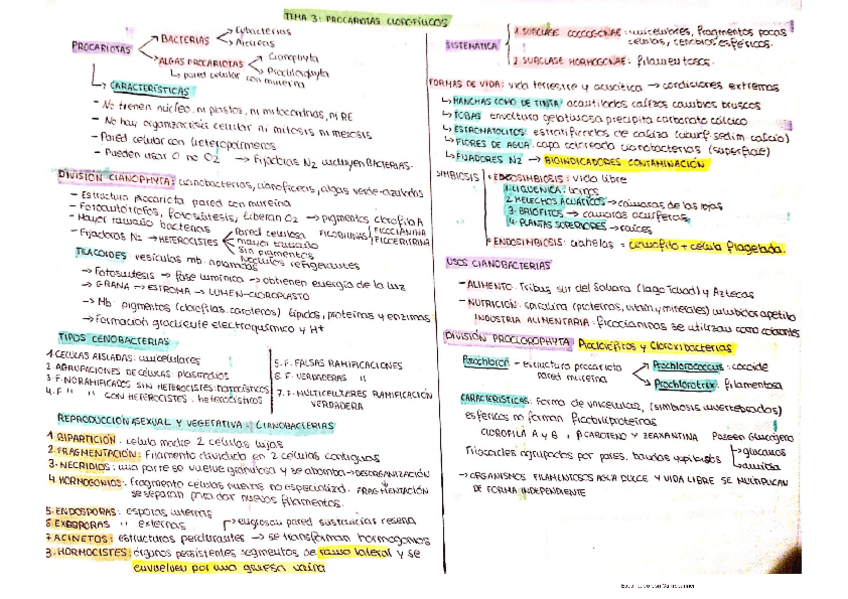 TEMA 3: PROCARIOTAS CLOROFÍLICOS
PROCARIOTAS
→ BACTERIAS
→ Eubacterias
→ ALGAS PROCARIOTAS
Cianophyta
Prochlorophyta
↳ pared celular con mureína
↳ CARACTERÍSTICAS
- No tienen núcleo, ni plastos, ni mitocondrias, ni RE
- No hay organización celular ni mitosis ni meiosis
- Pared celular con heteropolímeros
- Pueden usar O no O2 → Fijadoras N2 incluyen BACTERIAS.
DIVISIÓN CIANOPHYTA: cianobacterias, cianofíceas, algas verde-azuladas
- Estructura procariota pared con mureína
- Fotoautótrofos, fotosíntesis, liberan O2 → pigmentos clorofila A
- Mayor tamaño bacterias
FICOBILINAS
FICOCIANINA
FICOERITRINA
- Fijadoras N2 → HETEROCISTES
Pared celulosa
mayor tamaño
sin pigmentos
Nódulos refrigerantes
TILACOIDES vesículas mb. aplanadas
→ Fotosíntesis → fase lumínica → obtienen energía de la luz
→ GRANA → ESTROMA → LUMEN-CLOROPLASTO
→ Mb. pigmentos (clorofilas, carotenos) lípidos, proteínas y enzimas
→ Formación gradiente electroquímico y H+
TIPOS CENOBACTERIAS
1. CÉLULAS AISLADAS: unicelulares
2. AGRUPACIONES DE CÉLULAS: plasmodios
3. F. NO RAMIFICADOS SIN HETEROCISTES: homocísticos
4. F " " CON HETEROCISTES: heterocísticos
5. F. FALSAS RAMIFICACIONES
6. F. VERDADERAS "
7. F. MULTICELULARES RAMIFICACIÓN
VERDADERA
REPRODUCCIÓN ASEXUAL Y VEGETATIVA: CIANOBACTERIAS
1. BIPARTICIÓN: célula madre 2 células hijas
2. FRAGMENTACIÓN: Filamento dividido en 2 células contiguas
3. NECRIDIOS: una parte se vuelve granulosa y se abomba → DESORGANIZACIÓN
4. HORMOGONIOS: fragmento células nuevas no especializd. FRAGMENTACIÓN
se separan para dar nuevos filamentos.
5. ENDOSPORAS: esporas internas
6. EXOSPORAS " externas
→ engrosan pared sustancias reserva
7. ACINETOS: estructuras perdurantes → se transforman hormogonios
8. HORMOCISTES: órganos persistentes segmentos de ramo lateral y se
envuelven por una gruesa vaina
SISTEMÁTICA
1. SUBCLASE COCCOGONAE: unicelulares, fragmentos pocas
células, cenobios esféricos.
2. SUBCLASE HORMOGONAE: filamentosos.
FORMAS DE VIDA: vida terrestre y acuática → condiciones extremas
↳ MANCHAS COMO DE TINTA: acantilados calizos cambios bruscos
↳ TOBAS envoltura gelatinosa precipita carbonato cálcico
↳ ESTROMATOLITOS: estratificados de caliza
↳ FLORES DE AGUA: capa coloreada cianobacterias (superficie)
↳ FIJADORES N2 → BIOINDICADORES CONTAMINACIÓN
SIMBIOSIS
• : vida libre
1. LIQUÉNICA: hongos
2. HELECHOS ACUÁTICOS → de las hojas
3. BRIOFITOS → cámaras acuíferas
4. PLANTAS SUPERIORES → raíces
• ENDOSIMBIOSIS: cianelas = cianofito + célula flagelada.
USOS CIANOBACTERIAS
- ALIMENTO: Tribus sur del Sahara (lago Tchad) y Aztecas
- NUTRICIÓN: espirulina (proteínas, vitam y minerales) inhibidor apetito
INDUSTRIA ALIMENTARIA: ficocianinas se utilizan como colorantes
DIVISIÓN PROCLOROPHYTA Proclorófitos y Cloroxibacterias
Prochloron - estructura procariota
pared mureína
→ Prochlorococcus: cocoide
→ Prochlorotrix: filamentosa
CARACTERÍSTICAS: forma de unicelulas, (simbiosis invertebrados)
esféricos no forman ficobiliproteínas
CLOROFILA A y B, β CAROTENO Y ZEAXANTINA Poseen Glucógeno
Tilacoides agrupados por pares, pared
→ ORGANISMOS FILAMENTOSOS AGUA DULCE Y VIDA LIBRE SE MULTIPLICAN
DE FORMA INDEPENDIENTE